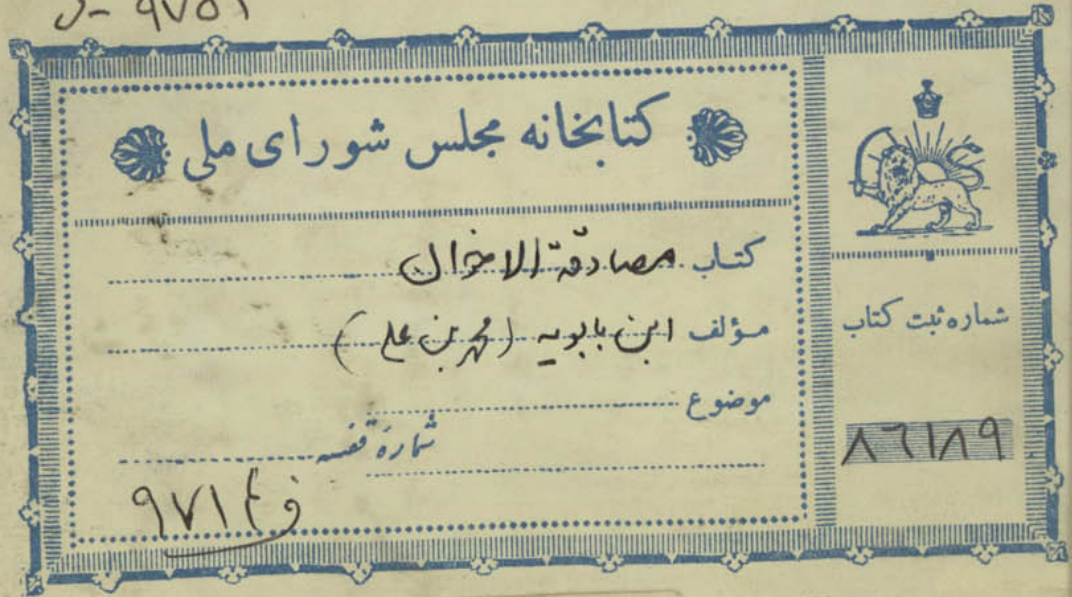 ۹۷۵۱
کتابخانه مجلس شورای ملی
کتاب مصادقة الاخوان
مؤلف ابن بابویه (محمد بن علی)
موضوع
شماره قفسه
۹۷۱
شماره ثبت کتاب
۸۶۱۸۹